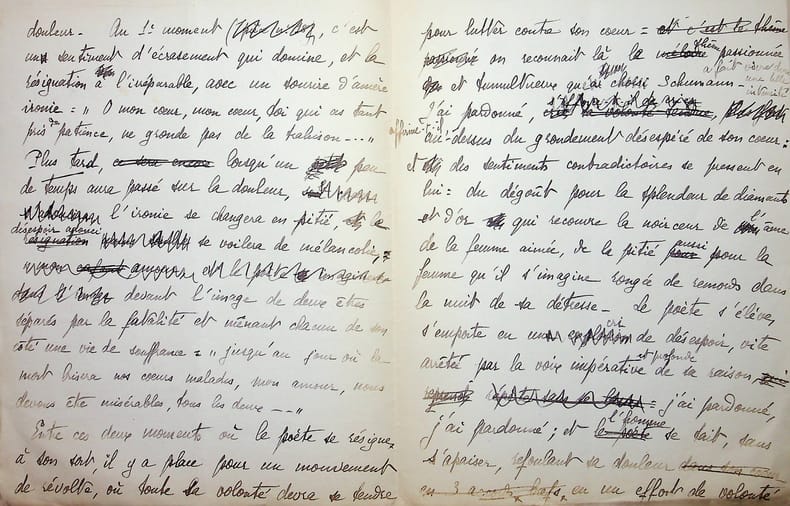 douleur. Au 1er moment, c'est
un sentiment d'écrasement qui domine, et la
résignation à l'irréparable, avec un sourire d'amère
ironie = "O mon cœur, mon cœur, toi qui as tant
pris de patience, ne gronde pas de ta trahison ---"
Plus tard, ce sera encore lorsqu'un peu
de temps aura passé sur la douleur,
l'ironie se changera en pitié, et la
désespoir adouci
résignation se voilera de mélancolie,
devant l'image de deux êtres
séparés par la fatalité et menant chacun de son
côté une vie de souffrance = "jusqu'au jour où la
mort brisera nos cœurs malades, mon amour, nous
devons être misérables, tous les deux ---"
Entre ces deux moments où le poète se résigne
à son sort, il y a place pour un mouvement
de révolte, où toute sa volonté devra se tendre
pour lutter contre son cœur = et c'est le thème
passionné on reconnait là la thème passionnée
et tumultueuse qu'a choisi Schumann -
a fait vivre dans
une telle
intensité
J'ai pardonné, la volonté tendue,
affirme-t-il
au-dessus du grondement désespéré de son cœur =
et des sentiments contradictoires se pressent en
lui = du dégoût pour la splendeur de diamants
et d'or qui recouvre la noirceur de l'âme
de la femme aimée, de la pitié aussi pour la
femme qu'il s'imagine rongée de remords dans
la nuit de sa détresse - Le poète s'élève,
s'emporte en un cri de désespoir, vite
arrêté par la voix impérative et profonde de sa raison,
j'ai pardonné,
j'ai pardonné ; et le poète l'homme se tait, sans
s'apaiser, refoulant sa douleur dans son cœur
en 3 accords, en un effort de volonté